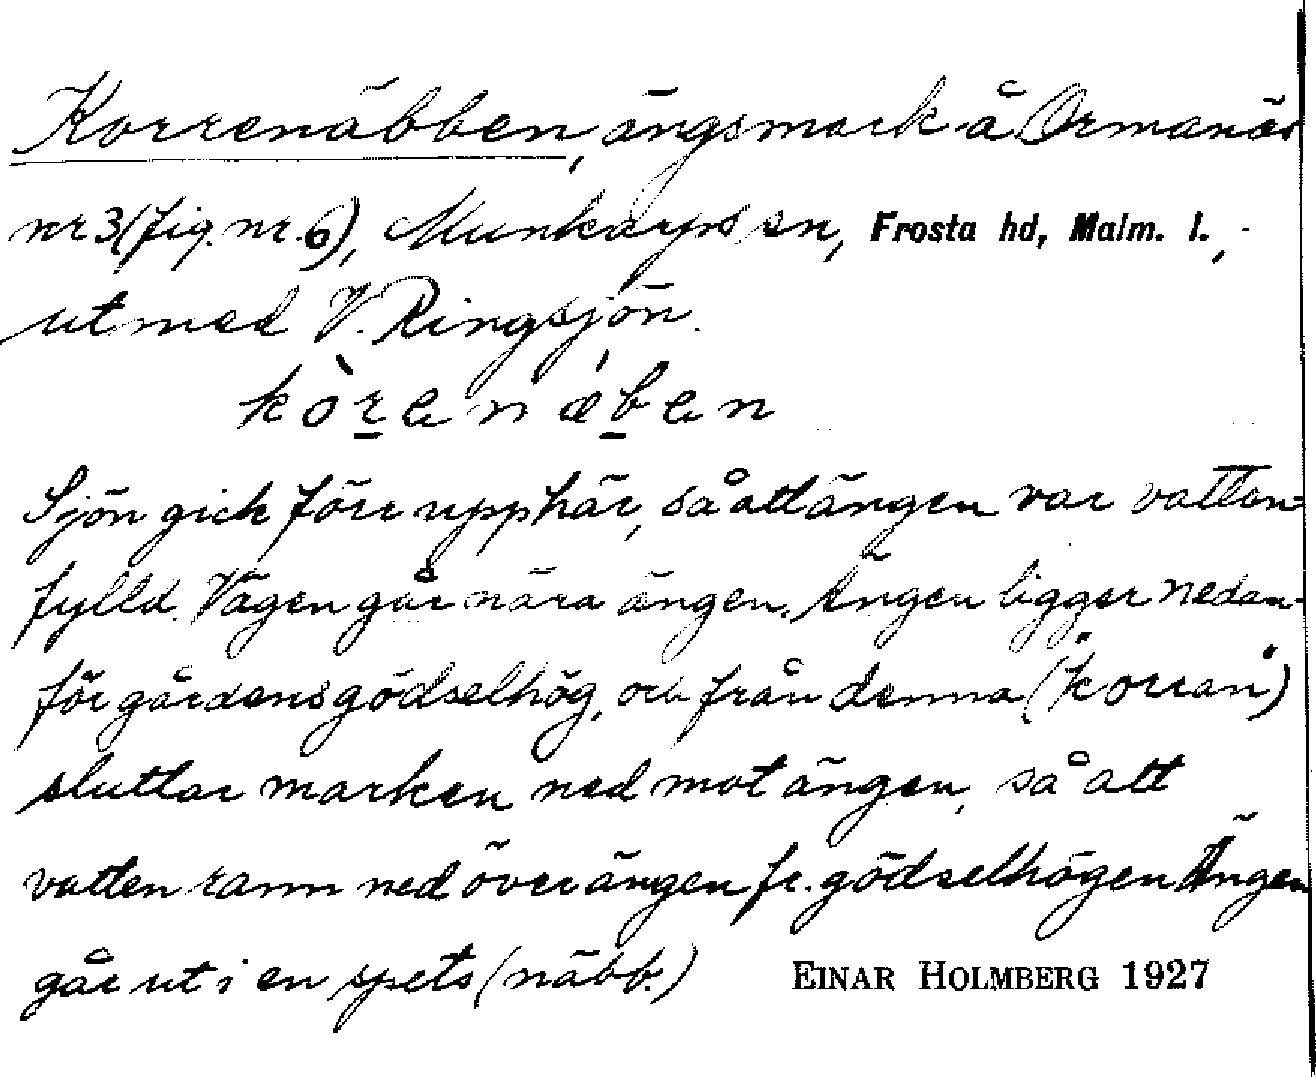 Korrenäbben, ängsmark å Ormanäs
nr 3 (fig. nr. 6), Munkarps sn, Frosta hd, Malm. l.,
utmed V. Ringsjön.
kòrenǽben
Sjön gick förr upp här, så att ängen var vatten-
fylld. Vägen går nära ängen. Ängen ligger nedan-
för gårdens gödselhög, och från denna ("korran")
sluttar marken ned mot ängen, så att
vatten rann ned över ängen fr. gödselhögen Ängen
går ut i en spets (näbb.) EINAR HOLMBERG 1927